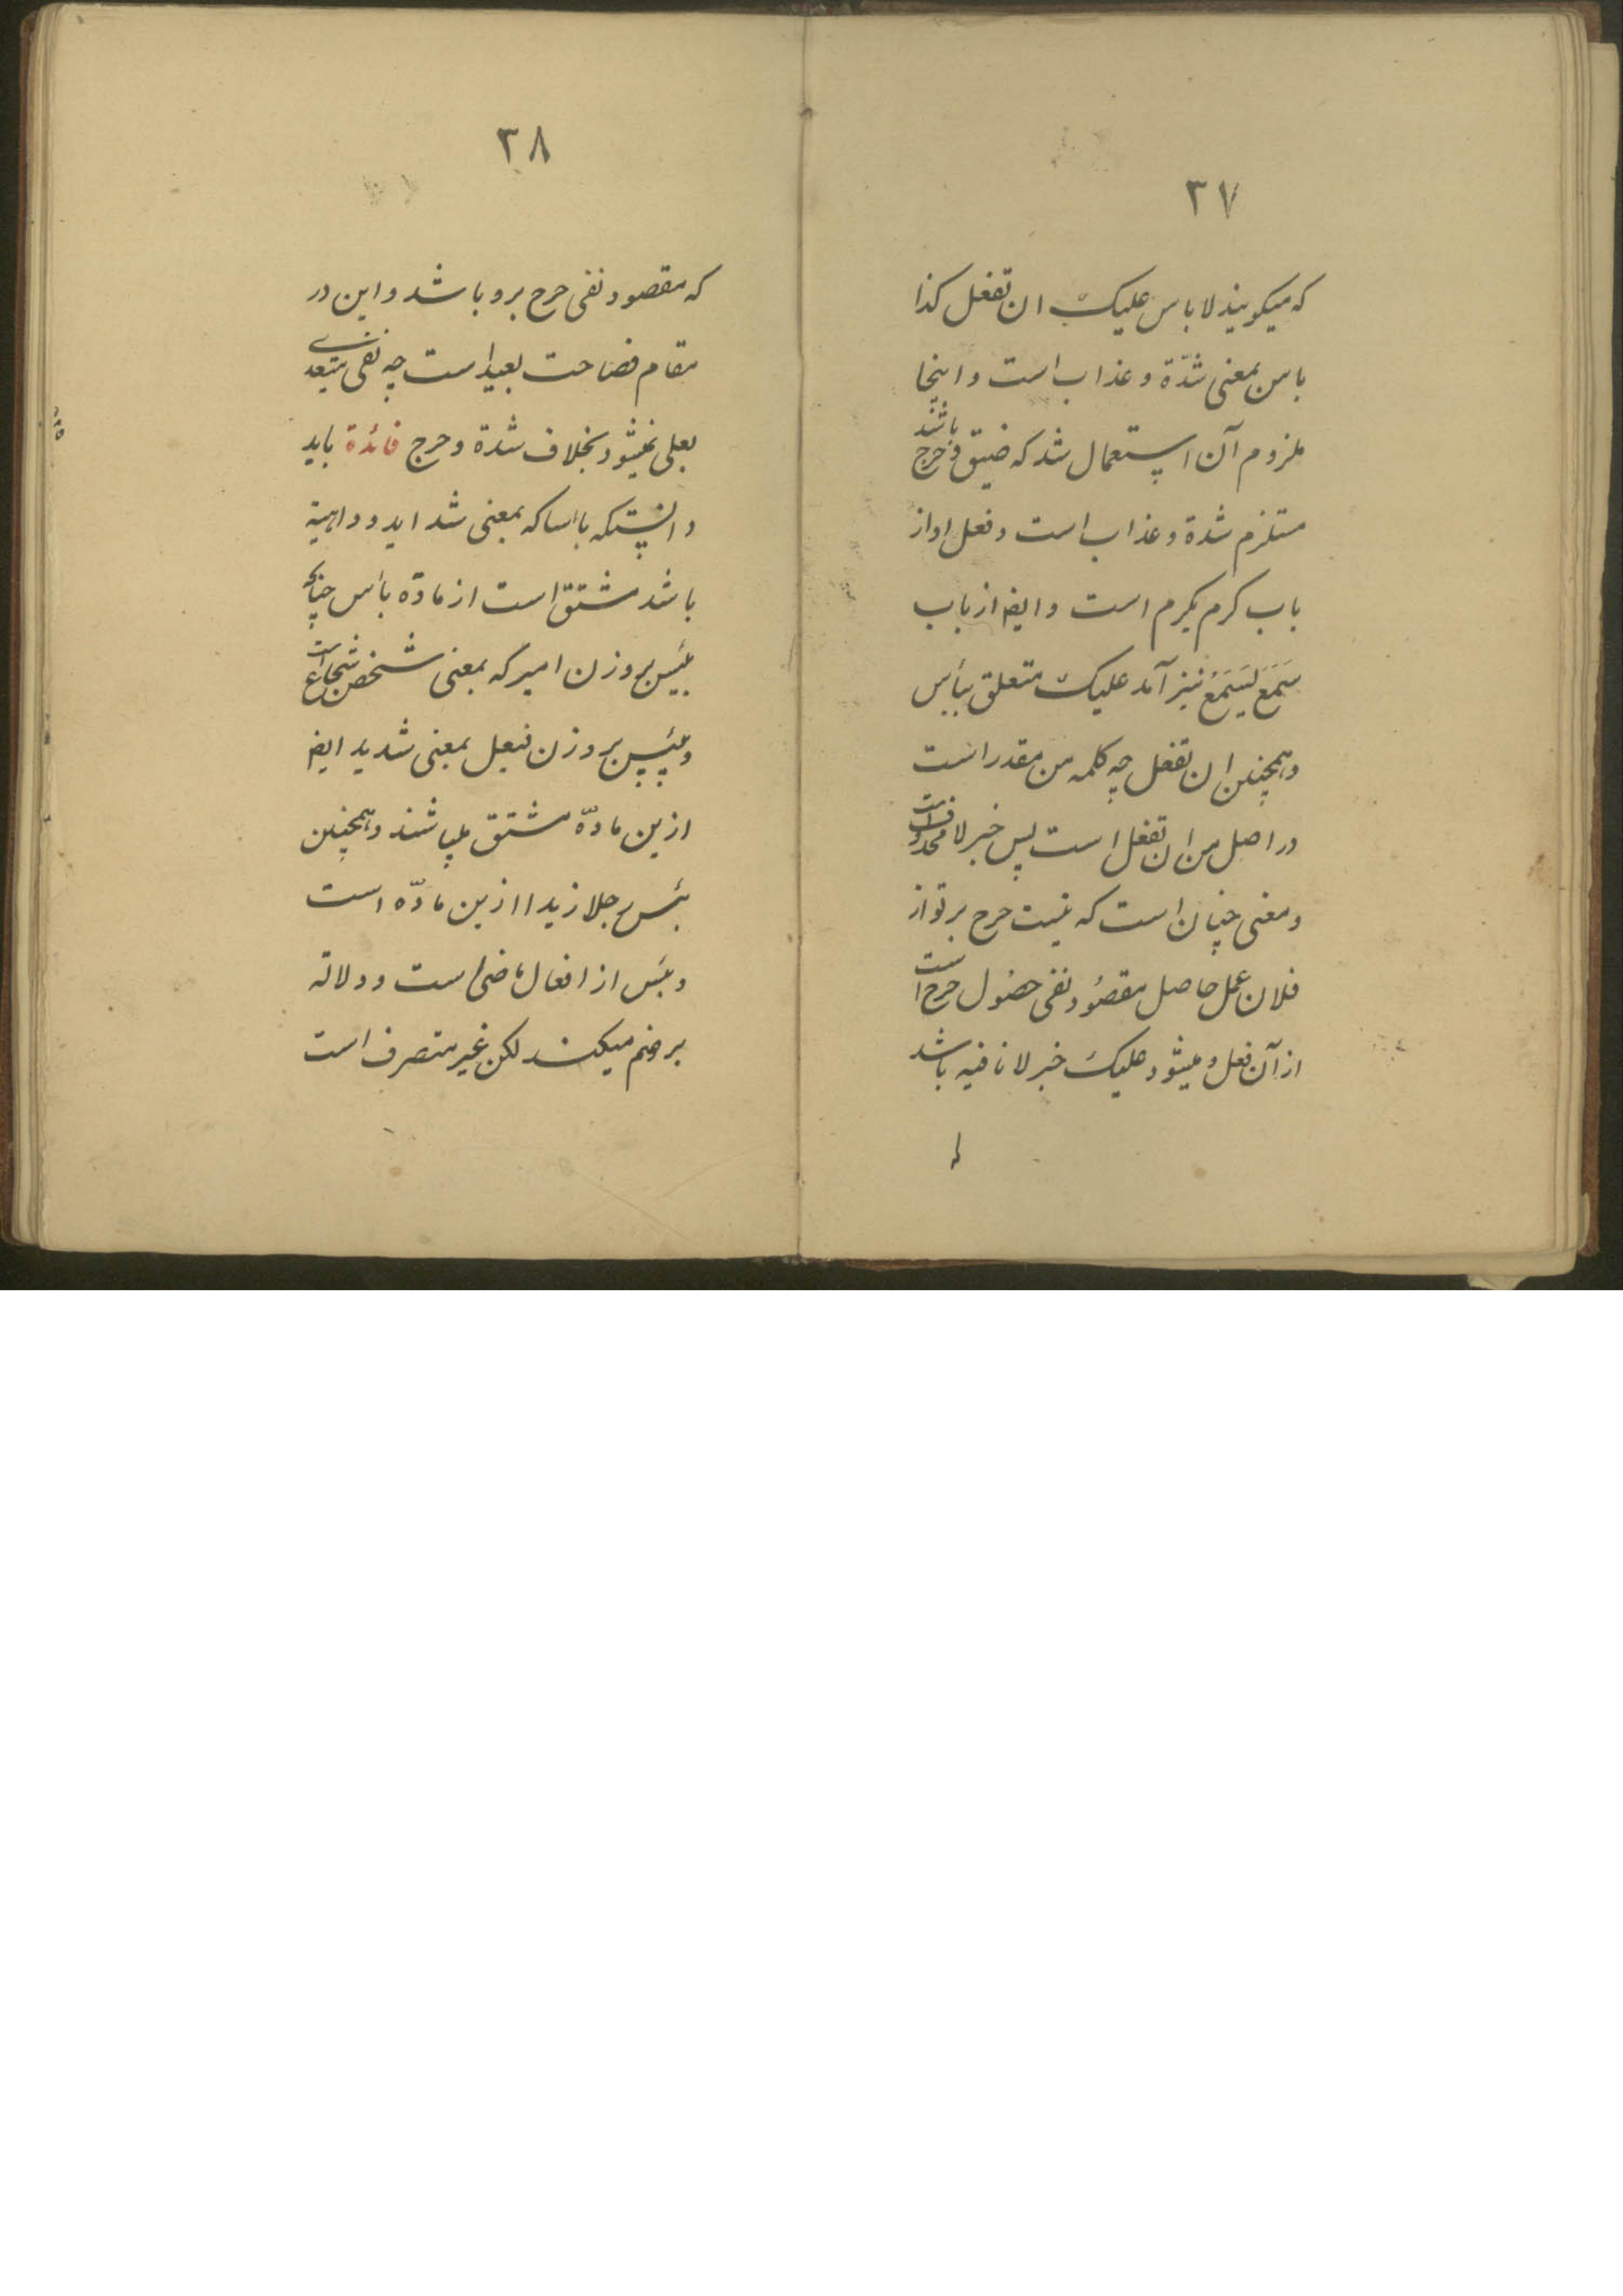 ٣٧
که میکویند لا باس علیک ان تفعل کذا
باس بمعنی شدّة و عذاب است و اینجا
ملزوم آن استعمال شد که ضیق و حرج باشند
مستلزم شدة و عذاب است و فعل او از
باب کرم یکرم است و ایضا از باب
سَمَعَ یَسَمَعُ نیز آمد علیک متعلق ببأس
و همچنین ان تفعل چه کلمه من مقدر است
در اصل من ان تفعل است پس خبر لا محذوفست
و معنی چنان است که نیست حرج بر تو از
فلان عمل حاصل مقصُود نفی حصُول حرج است
از آن فعل و میشود علیک خبر لا نافیه باشد
٣٨
که مقصود نفی حرج برو باشد و این در
مقام فصاحت بعید است چه نفی متعدی
بعلی نمیشود بخلاف شدة و حرج فائدة باید
دانستکه باساکه بمعنی شداید و داهیة
باشد مشتق است از مادّه بأس چنانکه
بئیس بر وزن امیر که بمعنی شخص شجاع است
و بیئس بر وزن فیعل بمعنی شدید ایضا
ازین مادّه مشتق میباشند و همچنین
بئس رجلا زیدا ازین مادّه است
و بئس از افعال ماضی است و دلالة
بر ذم میکند لکن غیر متصرف است